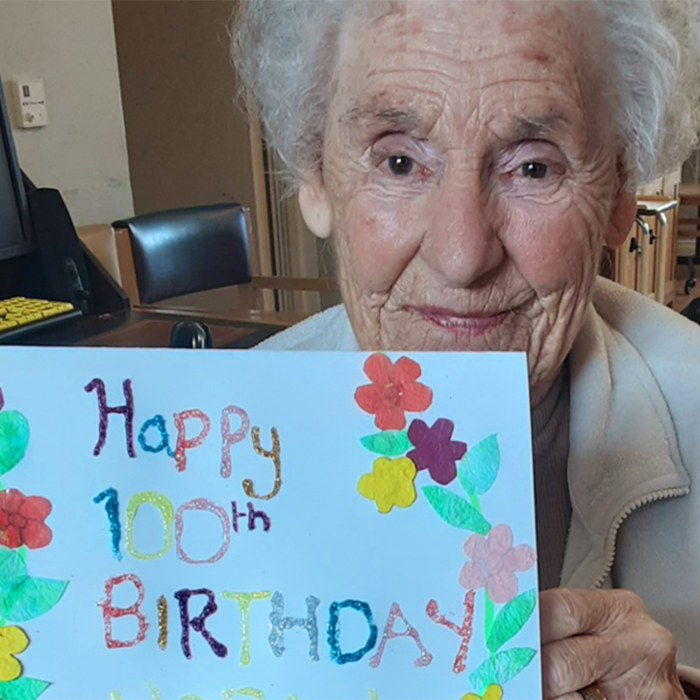 Happy
100th
BIRTHDAY